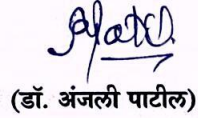 (डॉ. अंजली पाटील)